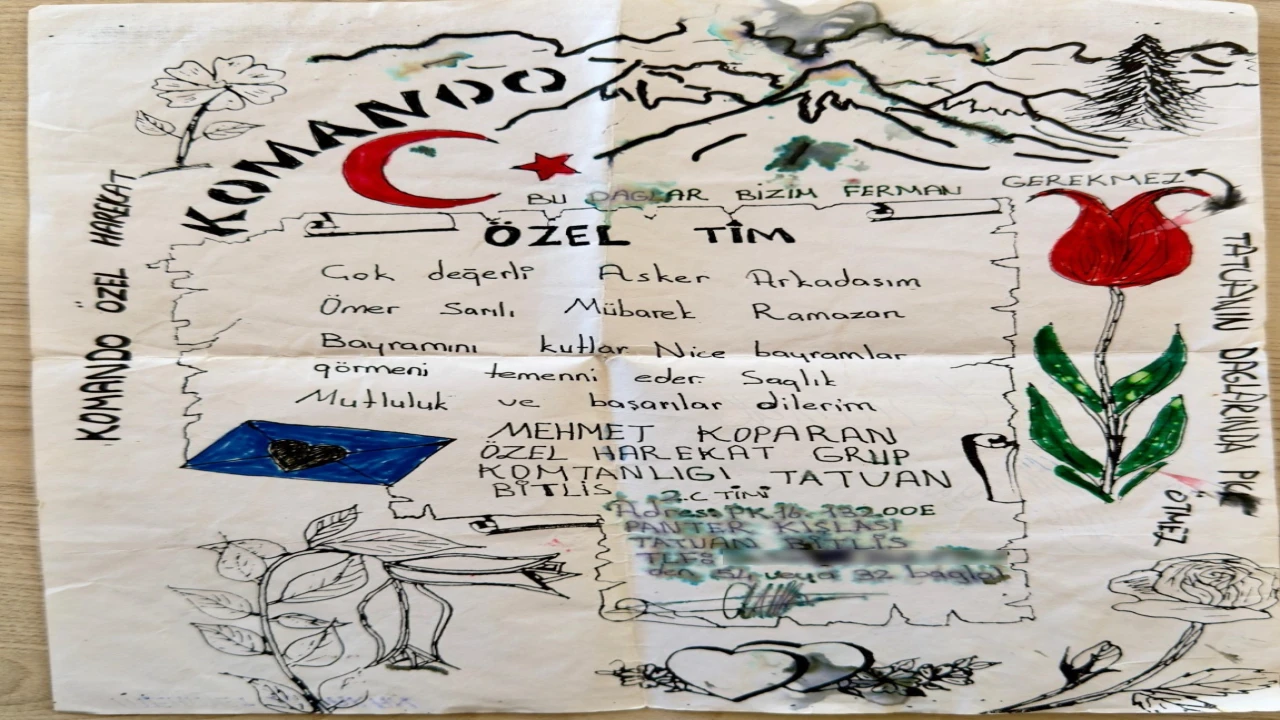 KOMANDO
BU DAGLAR BİZİM FERMAN GEREKMEZ
KOMANDO ÖZEL HAREKAT
ÖZEL TİM
Çok değerli Asker Arkadasım
Ömer Sarılı Mübarek Ramazan
Bayramını kutlar Nice bayramlar
görmeni temenni eder Saglık
Mutluluk ve başarılar dilerim
MEHMET KOPARAN
ÖZEL HAREKAT GRUP
KOMTANLIGI TATUAN
BİTLİS 2.C TİMİ
Adress PK 16. 132.00E
PANTER KISLASI
TATUAN BİTLİS
veya 32 baglat
TATUANIN DAGLARINDA
ÖTMEZ